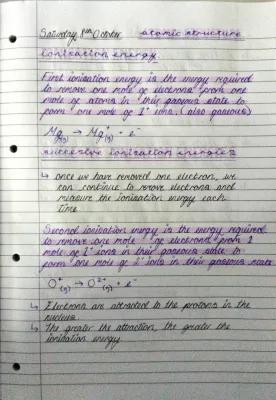 Saturday 8th October atomic structure
ionisation energy
First ionisation energy is the energy required
to remove one mole of electrons from one
mole of atoms in their gaseous state to
form one mole of 1+ ions. (also gaseous)
Mg(g) → Mg+(g) + e-
successive ionisation energies
↳ once we have removed one electron, we
can continue to remove electrons and
measure the ionisation energy each
time.
Second ionisation energy is the energy required
to remove one mole of electrons from 1
mole of 1+ ions in their gaseous state to
form one mole of 2+ ions in their gaseous state
O+(g) → O2+(g) + e-
↳ Electrons are attracted to the protons in the
nucleus.
↳ The greater the attraction, the greater the
ionisation energy